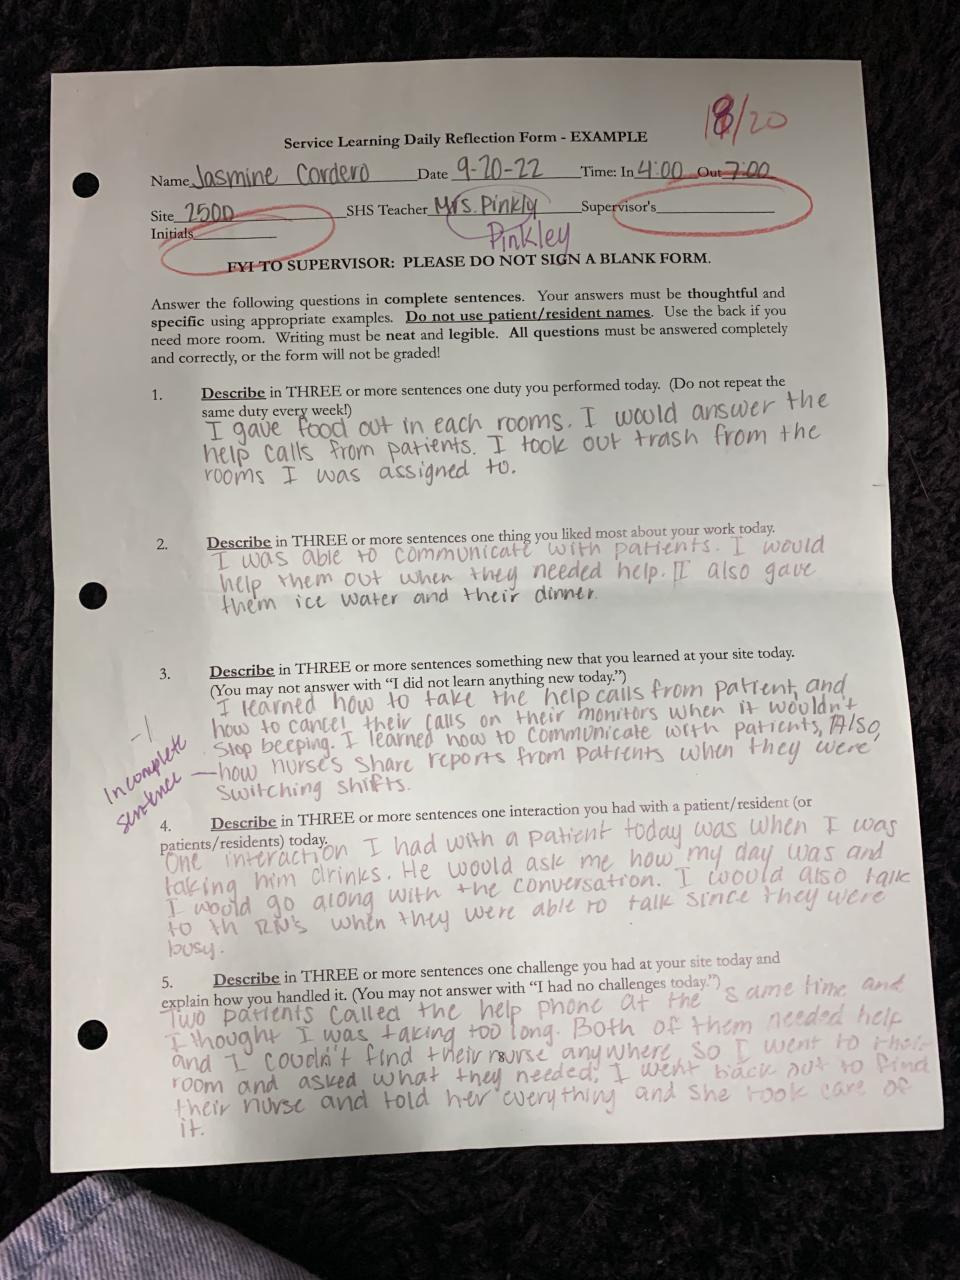 18/20
Service Learning Daily Reflection Form - EXAMPLE
Name Jasmine Cordero Date 9-20-22 Time: In 4:00 Out 7:00
Site 2500 SHS Teacher Mrs. Pinkly Supervisor's
Pinkley
Initials
FYI TO SUPERVISOR: PLEASE DO NOT SIGN A BLANK FORM.
Answer the following questions in complete sentences. Your answers must be thoughtful and
specific using appropriate examples. Do not use patient/resident names. Use the back if you
need more room. Writing must be neat and legible. All questions must be answered completely
and correctly, or the form will not be graded!
1. Describe in THREE or more sentences one duty you performed today. (Do not repeat the
same duty every week!)
I gave food out in each rooms. I would answer the
help calls from patients. I took out trash from the
rooms I was assigned to.
2. Describe in THREE or more sentences one thing you liked most about your work today.
I was able to communicate with patients. I would
help them out when they needed help. I also gave
them ice water and their dinner.
3. Describe in THREE or more sentences something new that you learned at your site today.
(You may not answer with "I did not learn anything new today.")
I learned how to take the help calls from patient, and
how to cancel their calls on their monitors when it wouldn't
stop beeping. I learned how to communicate with patients, Also,
how nurse's share reports from patients when they were
switching shifts.
-1
Incomplete
sentence
4. Describe in THREE or more sentences one interaction you had with a patient/resident (or
patients/residents) today.
One interaction I had with a patient today was when I was
taking him drinks. He would ask me how my day was and
I would go along with the conversation. I would also talk
to th RN's when they were able to talk since they were
busy.
5. Describe in THREE or more sentences one challenge you had at your site today and
explain how you handled it. (You may not answer with "I had no challenges today.")
Two patients called the help phone at the same time and
I thought I was taking too long. Both of them needed help
and I couldn't find their nurse anywhere, so I went to their
room and asked what they needed, I went back out to find
their nurse and told her everything and she took care of
it.